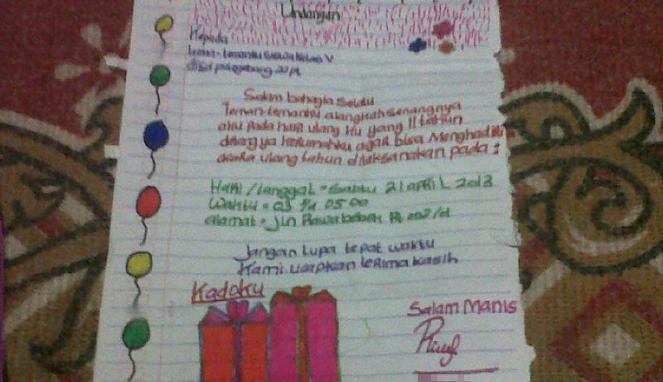 Undangan
Kepada
teman-temanku siswa kelas V
di sd pulogebang 20 pt
Salam bahagia Selalu
Teman-temanku alangkah senangnya
aku pada hari ulang ku yang 11 tahun
datang ya kerumahku agar bisa Menghadiri
acara ulang tahun dilaksanakan pada :
Hari / tanggal = Sabtu 21 april 2013
Waktu = 03 05 00
alamat = jln Rawa bebek Rt 002/
Jangan lupa tepat waktu
Kami ucapkan terima kasih
Kadoku
Salam Manis